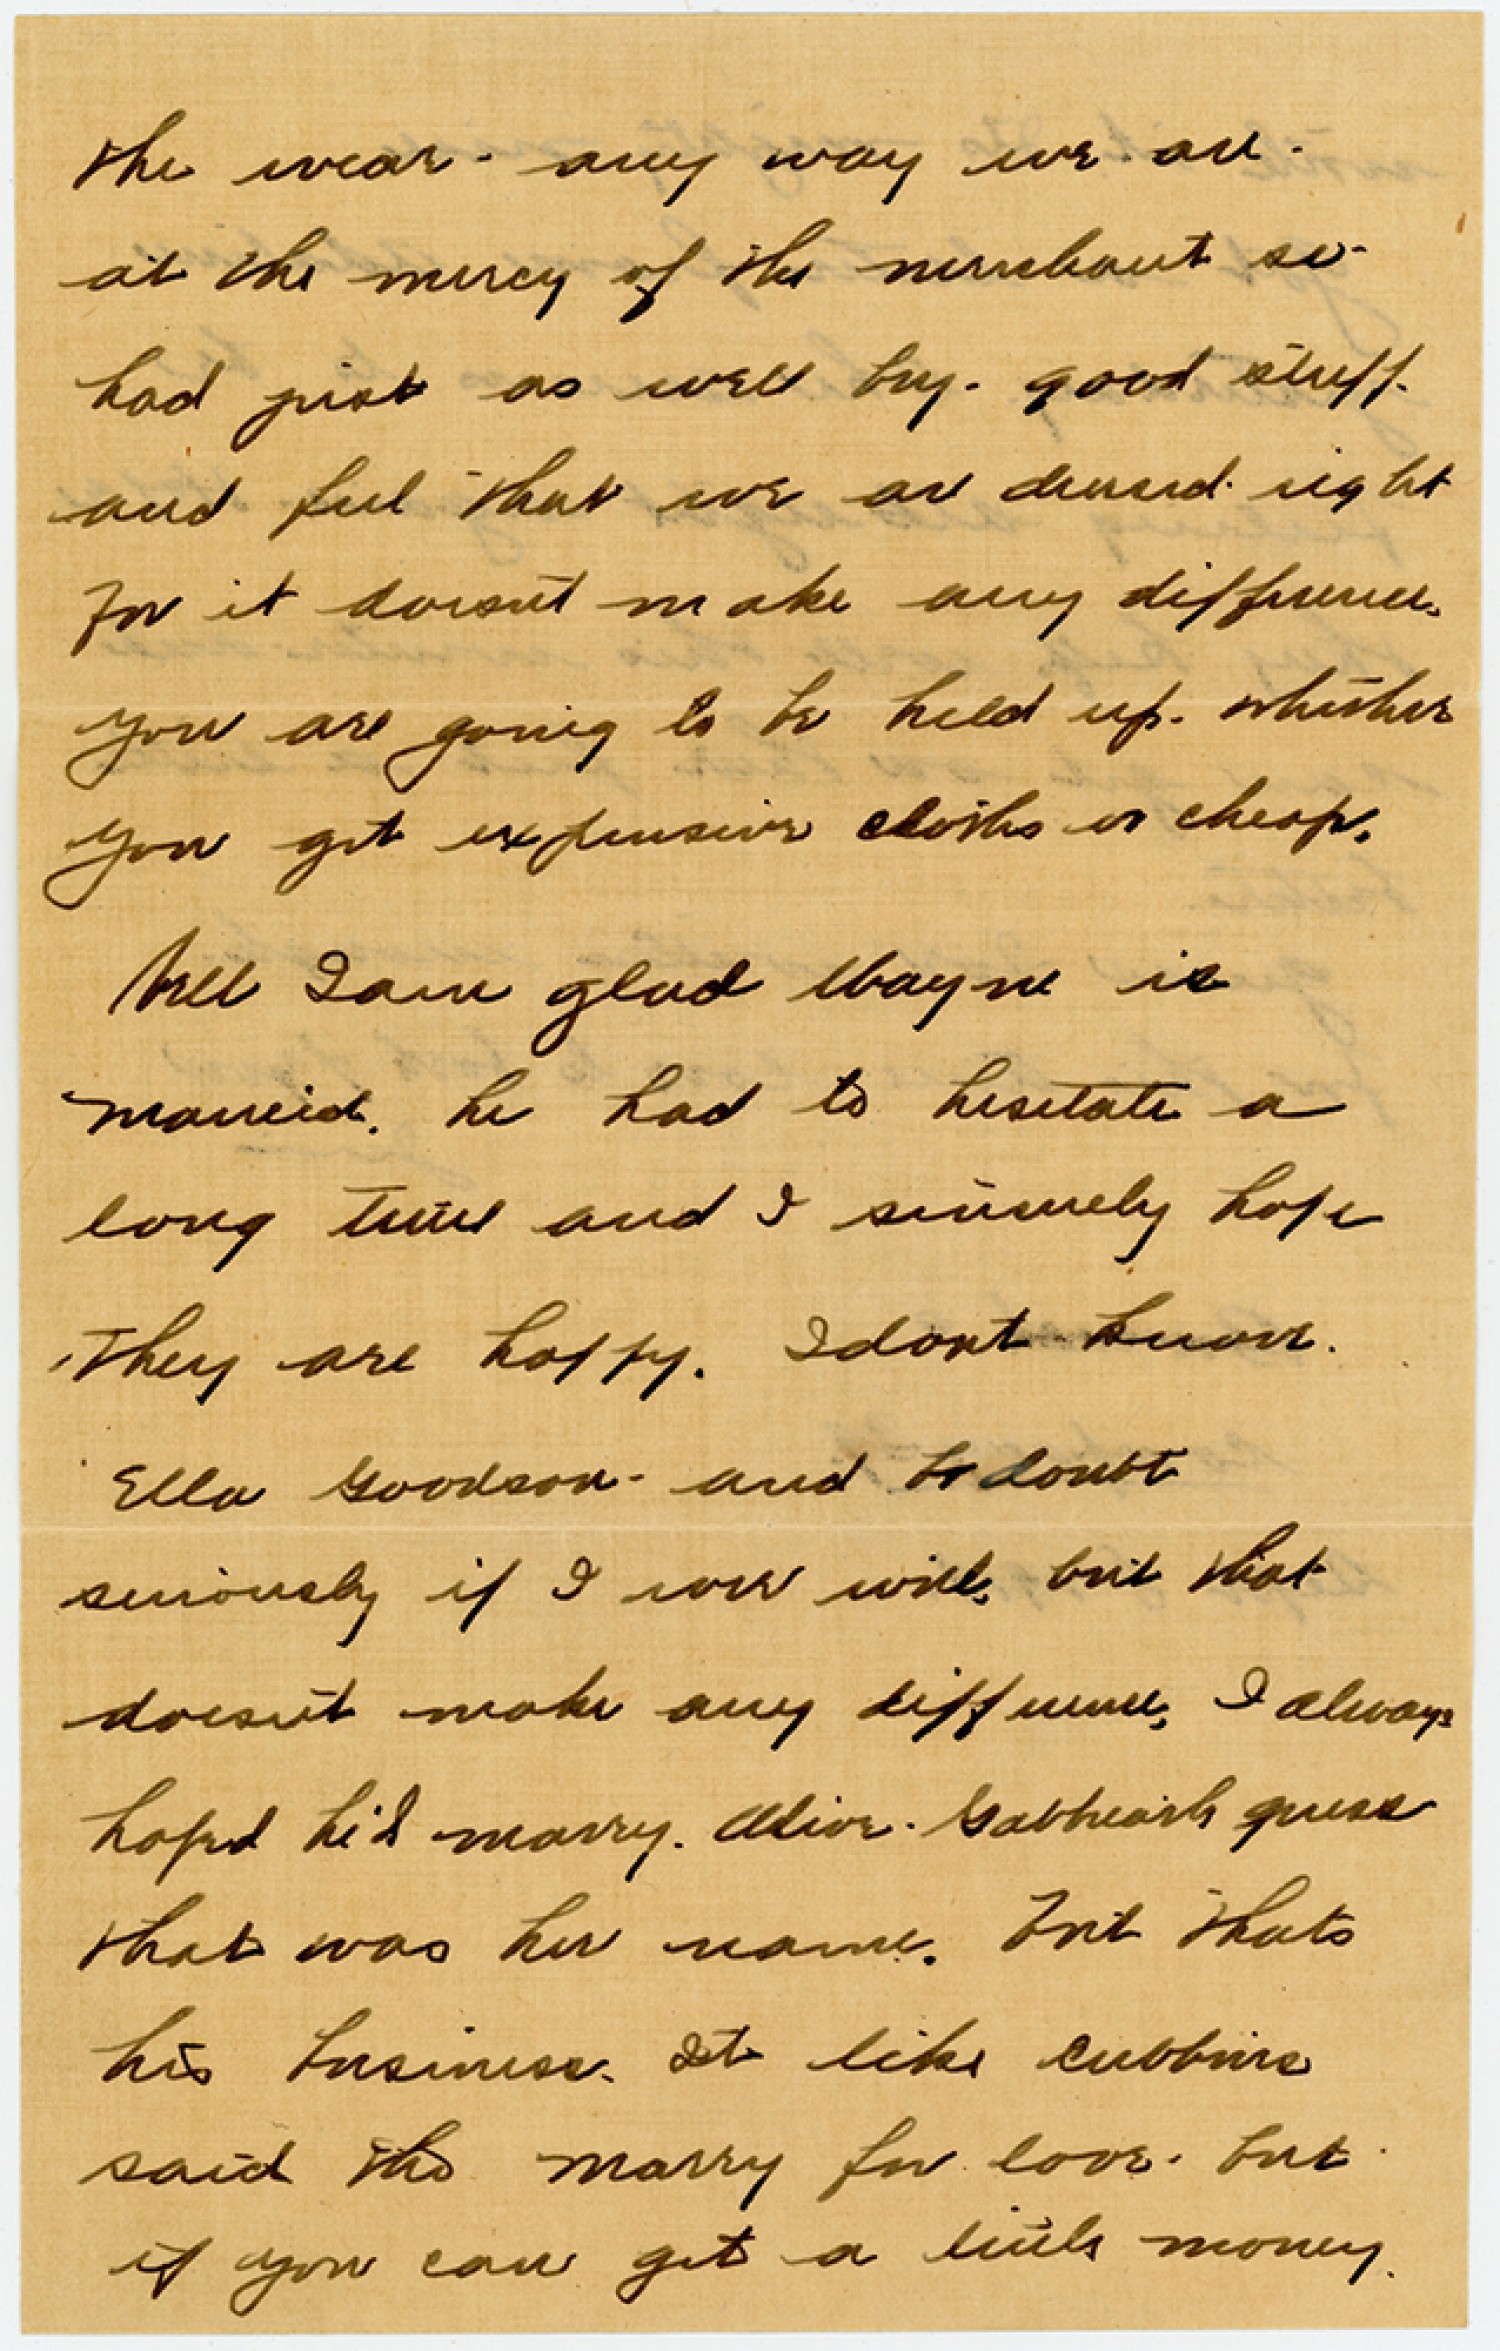 the wear. any way we are.
at the mercy of the merchant so-
had just as well buy. good stuff.
and feel that we are dressed right
for it doesn't make any difference.
you are going to be held up. whether
you get expensive cloths or cheap.
Well I am glad Wayne is
married. he had to hesitate a
long time and I sincerely hope
they are happy. I dont know.
Ella Goodson - and doubt
seriously if I ever will, but that
doesn't make any difference, I always
hoped he'd marry. guess
that was her name. but thats
his business. It like Cubbins
said the marry for love. but
if you can get a little money.